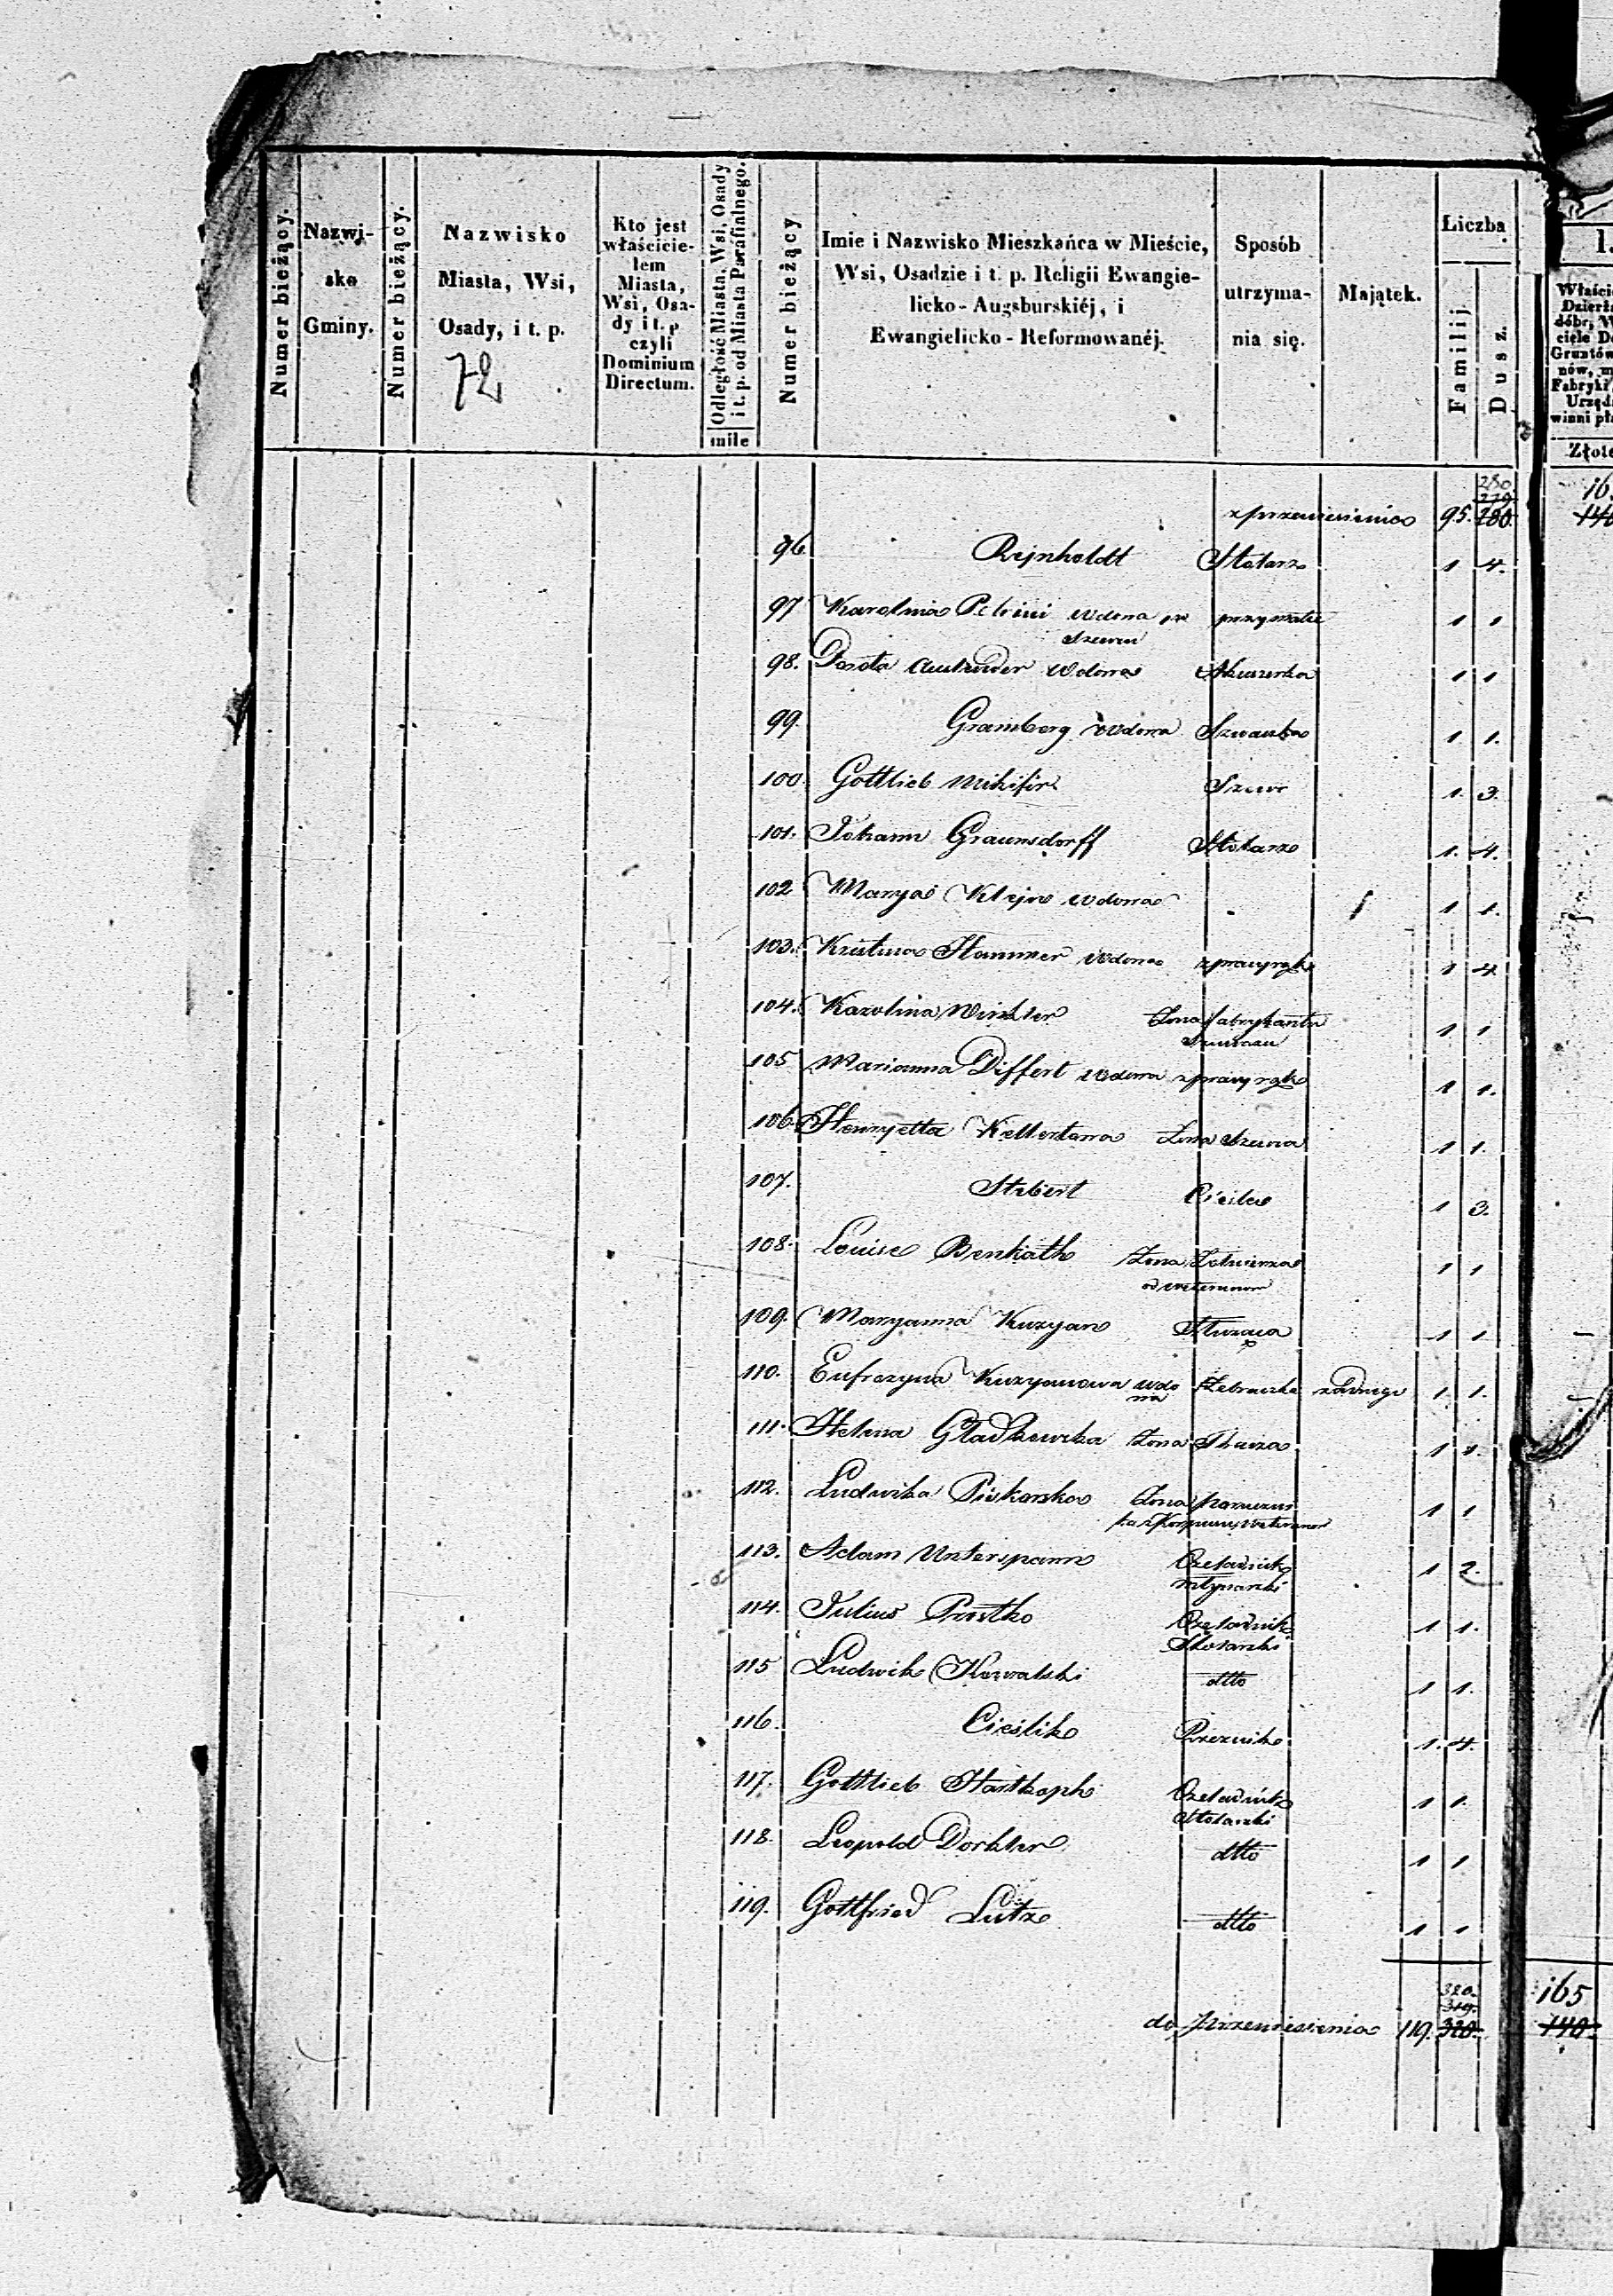 Numer bieżący.
Nazwi-
sko
Gminy.
Numer bieżący.
Nazwisko
Miasta, Wsi,
Osady, i t. p.
72
Kto jest
właścicie-
lem
Miasta,
Wsi, Osa-
dy i t. p
czyli
Dominium
Directum.
Odległość Miasta, Wsi, Osady
i t. p. od Miasta Parafialnego.
mile
Numer bieżący
Imie i Nazwisko Mieszkańca w Mieście,
Wsi, Osadzie i t. p. Religii Ewangie-
licko-Augsburskiéj, i
Ewangielicko-Reformowanéj.
Sposób
utrzyma-
nia się.
Majątek.
Liczba
Familij
Dusz.
Złote
280
279.
z przeniesienia 95. 280.
96 Rejnholdt Stolarz 1 4.
97 Karolina Petrini wdowa po przy matce 1 1
Szewcu
98. Dorota wdowa Akuszerka 1 1
99. Gramberg wdowa Szwaczka 1. 1.
100. Gottlieb Szewc 1. 3.
101. Johann Graunsdorff Stolarz 1. 4.
102 Marya Klejn wdowa 1 1.
103. Krystina Hammer wdowa z pracy rąk 1 4
104. Karolina Winkler Żona fabrykanta 1 1
105 Marianna Differt wdowa z pracy rąk 1 1.
106. Henryetta Kellertowa Żona Szewca 1 1.
107. Stebert Cieśla 1 3.
108. Louise Benkath Żona Żołnierza 1 1
od weteranów
109. Maryanna Kuzyan Służąca 1 1
110. Eufrozyna Kuzyanowa wdo Żebraczka żadnego 1. 1.
wa
111. Helena Gładkowska Żona Tkacza 1 1.
112. Ludwika Piskorska Żona 1 1
ka z Korpusu weteranów
113. Adam Unterspann Czeladnik 1 2.
młynarski
114. Julius Prostko Czeladnik 1 1.
Stolarski
115 Ludwik Kowalski dtto 1 1.
116. Cieślik Rzeznik 1. 4.
117. Gottlieb Hartkoph Czeladnik 1 1.
Stolarski
118. Leopold Dorkter dtto 1 1
119. Gottfried Lutz dtto 1 1
320.
319.
do przeniesienia 119. 320.
165
140.